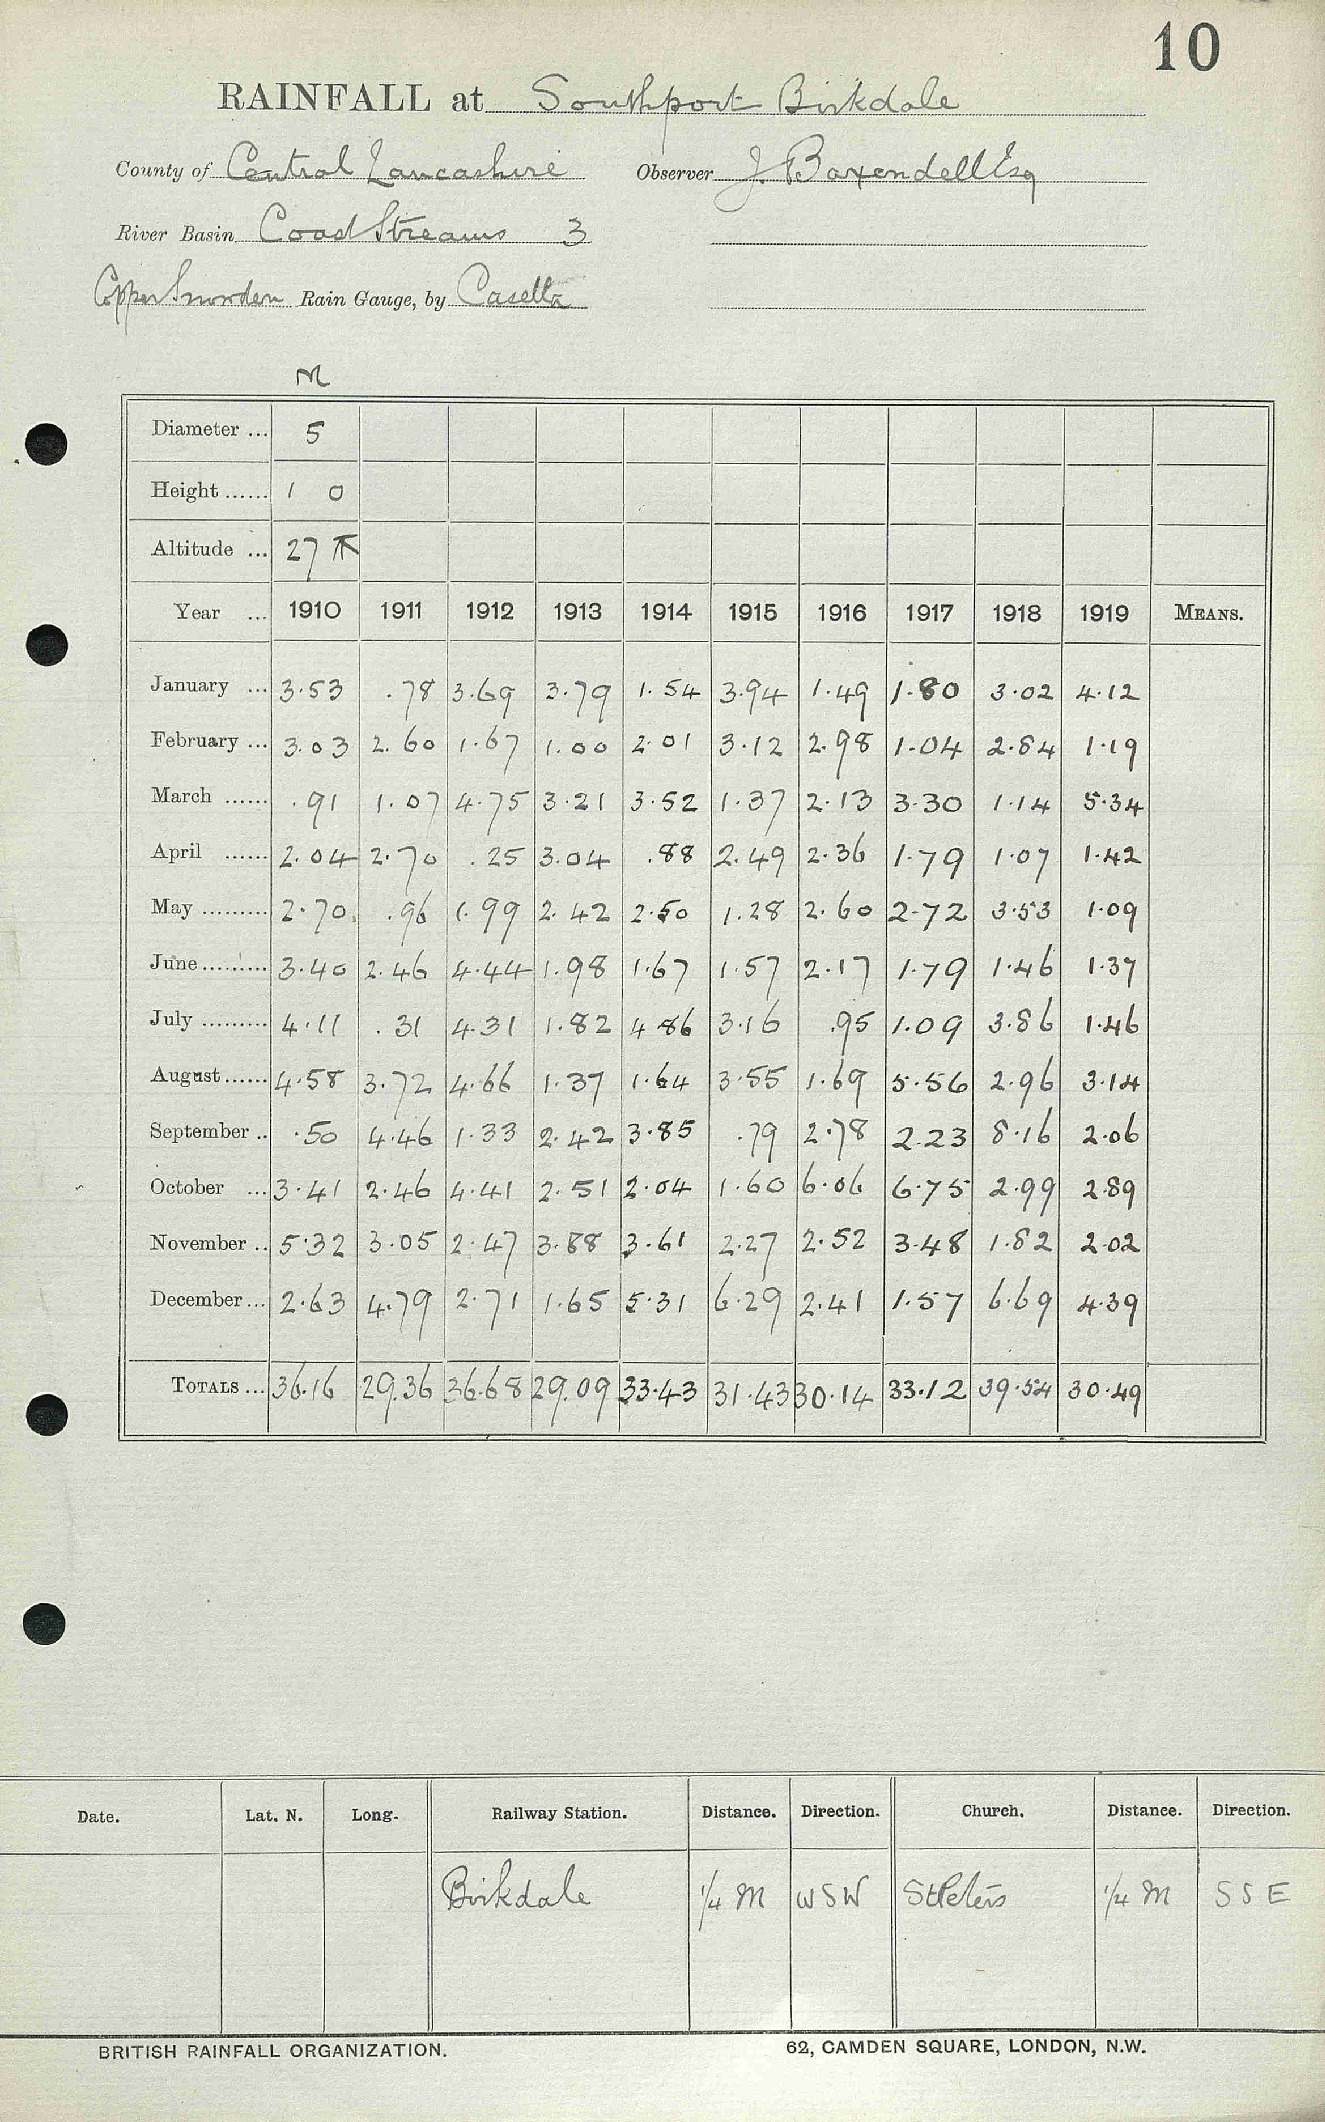 10
RAINFALL at Southport Birkdale
County of Central Lancashire Observer J. Baxendell Esq
River Basin Coast Streams 3
Copper Snowdon Rain Gauge, by Casella
M
Diameter ... 5
Height ...... 1 0
Altitude ... 27
Year ... 1910 1911 1912 1913 1914 1915 1916 1917 1918 1919 MEANS.
January ... 3.53 .78 3.69 3.79 1.54 3.94 1.49 1.80 3.02 4.12
February ... 3.03 2.60 1.67 1.00 2.01 3.12 2.98 1.04 2.84 1.19
March ...... .91 1.07 4.75 3.21 3.52 1.37 2.13 3.30 1.14 5.34
April ...... 2.04 2.70 .25 3.04 .88 2.49 2.36 1.79 1.07 1.42
May ......... 2.70 .96 1.99 2.42 2.50 1.28 2.60 2.72 3.53 1.09
June ......... 3.40 2.46 4.44 1.98 1.67 1.57 2.17 1.79 1.46 1.37
July ......... 4.11 .31 4.31 1.82 4.86 3.16 .95 1.09 3.86 1.46
August ...... 4.58 3.72 4.66 1.37 1.64 3.55 1.69 5.56 2.96 3.14
September .. .50 4.46 1.33 2.42 3.85 .79 2.78 2.23 8.16 2.06
October ... 3.41 2.46 4.41 2.51 2.04 1.60 6.06 6.75 2.99 2.89
November .. 5.32 3.05 2.47 3.88 3.61 2.27 2.52 3.48 1.82 2.02
December ... 2.63 4.79 2.71 1.65 5.31 6.29 2.41 1.57 6.69 4.39
TOTALS ... 36.16 29.36 36.68 29.09 33.43 31.43 30.14 33.12 39.54 30.49
Date. Lat. N. Long. Railway Station. Distance. Direction. Church. Distance. Direction.
Birkdale 1/4 M WSW St Peters 1/4 M SSE
BRITISH RAINFALL ORGANIZATION. 62, CAMDEN SQUARE, LONDON, N.W.